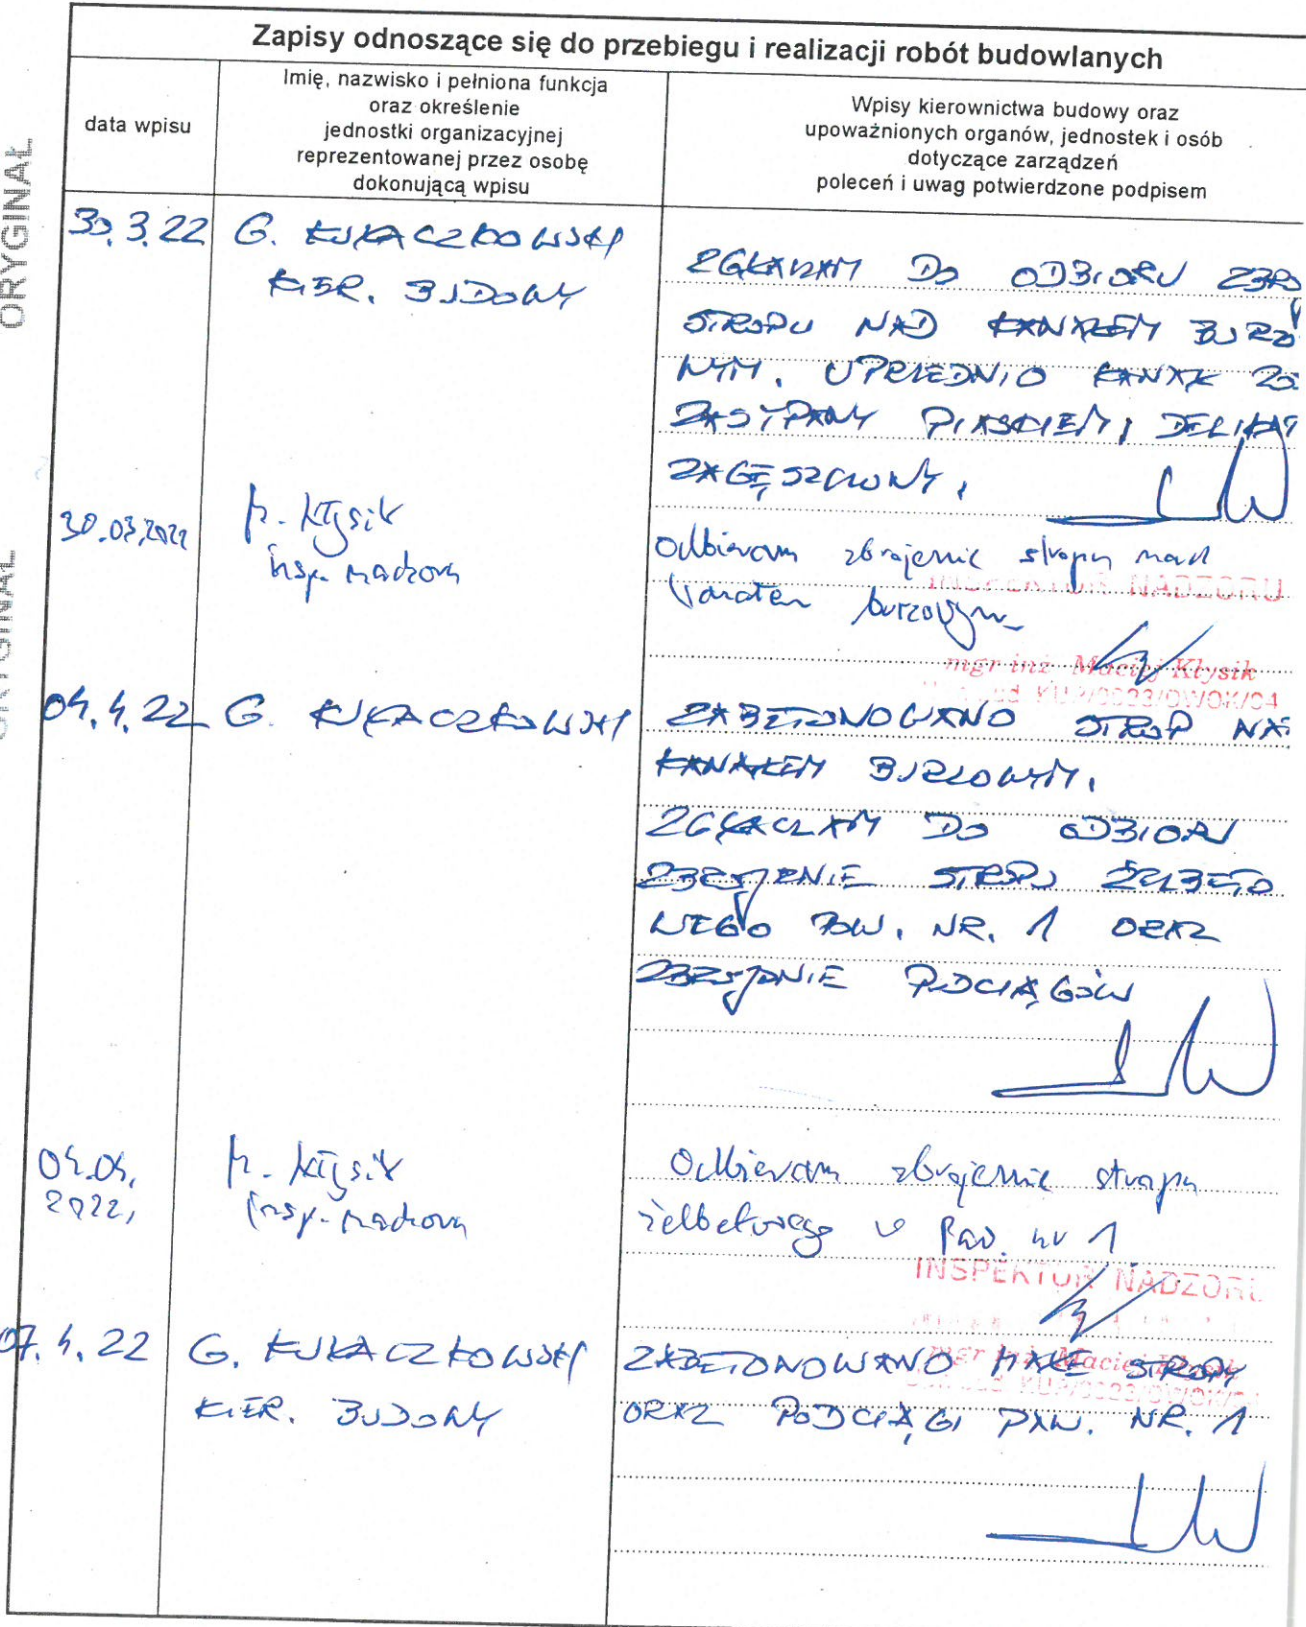 ORYGINAŁ
ORYGINAŁ
Zapisy odnoszące się do przebiegu i realizacji robót budowlanych
data wpisu
Imię, nazwisko i pełniona funkcja
oraz określenie
jednostki organizacyjnej
reprezentowanej przez osobę
dokonującą wpisu
Wpisy kierownictwa budowy oraz
upoważnionych organów, jednostek i osób
dotyczące zarządzeń
poleceń i uwag potwierdzone podpisem
30.3.22 G.
KIER. BUDOWY
ZGŁASZAM DO ODBIORU ZBRO
STROPU NAD KANAŁEM BURZO
WYM. UPRZEDNIO KANAŁ ZO
ZASYPANY PIASKIEM, DELIKAT
ZAGĘSZCZONY.
30.03.2022 M. Kłysik
insp. nadzoru
Odbieram zbrojenie stropu nad
kanałem burzowym
INSPEKTOR NADZORU
mgr inż. Maciej Kłysik
KUP/0023/OWOK/04
04.4.22 G.
ZABETONOWANO STROP NA
KANAŁEM BURZOWYM.
ZGŁASZAM DO ODBIORU
ZBROJENIE STROPU ŻELBETO
WEGO PAW. NR. 1 ORAZ
ZBROJENIE PODCIĄGÓW
04.04.
2022,
M. Kłysik
insp. nadzoru
Odbieram zbrojenie stropu
żelbetowego w Paw. nr 1
INSPEKTOR NADZORU
mgr inż. Maciej Kłysik
KUP/0023/OWOK/04
07.4.22 G.
KIER. BUDOWY
ZABETONOWANO MAŁE STROPY
ORAZ PODCIĄGI PAW. NR. 1